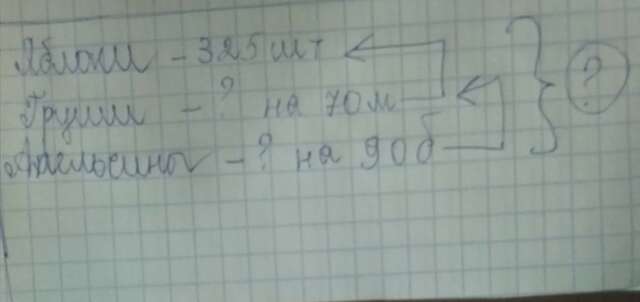 Яблоки - 325 шт
Груши - ? на 70 м
Апельсины - ? на 90 б
?